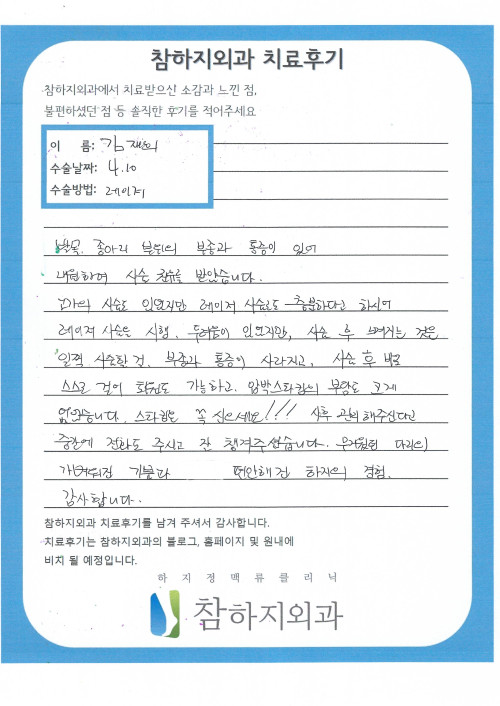 참하지외과 치료후기
참하지외과에서 치료받으신 소감과 느낀 점,
불편하셨던 점 등 솔직한 후기를 적어주세요
이 름: 김
수술날짜: 4.10
수술방법: 레이저
발목, 종아리 부위의 부종과 통증이 있어
내원하여 시술 권유를 받았습니다.
시술도 있었지만 레이저 시술로도 충분하다고 하시어
레이저 시술을 시행. 두려움이 있었지만, 시술 후 느껴지는 것은
일찍 시술할 걸. 부종과 통증이 사라지고, 시술 후 바로
스스로 걸어 화장실도 가능하고. 압박스타킹의 부담도 크게
없었습니다. 스타킹은 꼭 신으세요!!! 사후 관리해주신다고
중간에 전화도 주시고 잘 챙겨주셨습니다. 다리의
가벼워진 기분과 편안해진 하지의 경험.
감사합니다.
참하지외과 치료후기를 남겨 주셔서 감사합니다.
치료후기는 참하지외과의 블로그, 홈페이지 및 원내에
비치 될 예정입니다.
하지정맥류클리닉
참하지외과